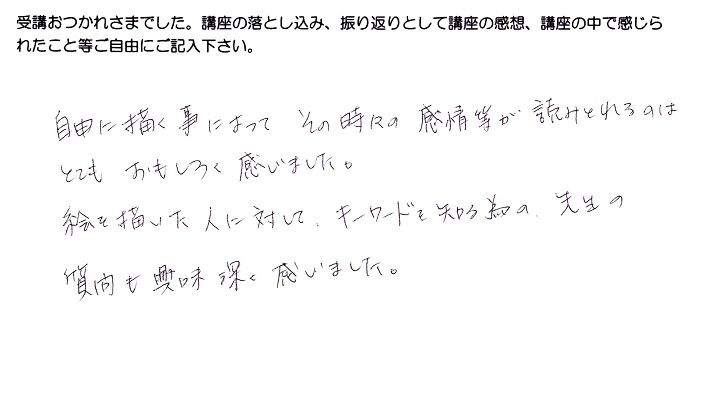 受講おつかれさまでした。講座の落とし込み、振り返りとして講座の感想、講座の中で感じら
れたこと等ご自由にご記入下さい。
自由に描く事によって その時々の感情等が読みとれるのは
とても おもしろく感じました。
絵を描いた人に対して、キーワードを知る為の、先生の
質問も興味深く感じました。